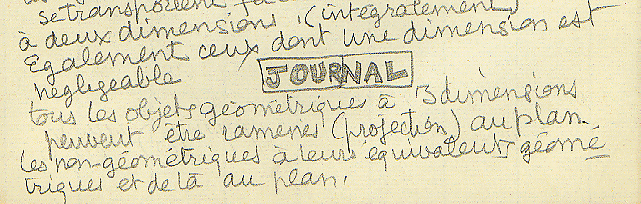 se transportent
à deux dimensions (intégralement)
Egalement ceux dont une dimension est
négligeable
JOURNAL
tous les objets géométriques à 3 dimensions
peuvent être ramenés (projection) au plan.
Les non-géométriques à leurs équivalents géomé
triques et de là au plan.